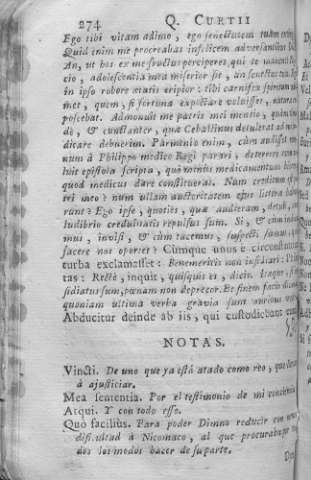 274 Q. CURTII
Ego tibi vitam adimo, ego senectutem tuam
Quid enim me procreabas infelicem adversantibus
An, ut hos ex me fructus perciperes, qui te manent?
cio, adolescentia mea miserior sit, an senectus tua.
in ipso robore ætatis eripior: tibi carnifex spiritum
met, quem, si fortuna expectare voluisset, natura
poscebat. Admonuit me patris mei mentio, quàm
dè, & cunctanter, quæ Ceballinus detulerat
dicare debuerim. Parmenio enim, cùm audisset
num à Philippo medico Regi parari, deterrere
luit epistola scripta, quò minùs medicamentum
quod medicus dare constituerat. Num creditum
tri meo? num ullam auctoritatem ejus litteræ
runt? Ego ipse, quoties, quæ audieram, detuli,
ludibrio credulitatis repulsus sum. Si, & cùm
mus, invisi, & cùm tacemus, suspecti sumus,
facere nos oportet? Cùmque unus è circumstantium
turba exclamasset: Benemeritis non insidiari:
tas: Rectè, inquit, quisquis es, dicis. Itaque, si
sidiatus sum, pœnam non deprecor. Et finem facio
quoniam ultima verba gravia sunt auribus
Abducitur deinde ab iis, qui custodiebant
NOTAS.
Vincti. De uno que ya està atado como reo, que
à ajusticiar.
Mea sententia. Por el testimonio de mi conciencia
Atqui. Y con todo esso.
Quò facilius. Para poder Dimno reducir con
dificultad à Nicomaco, al que procuraba por
dos los modos hacer de su parte.